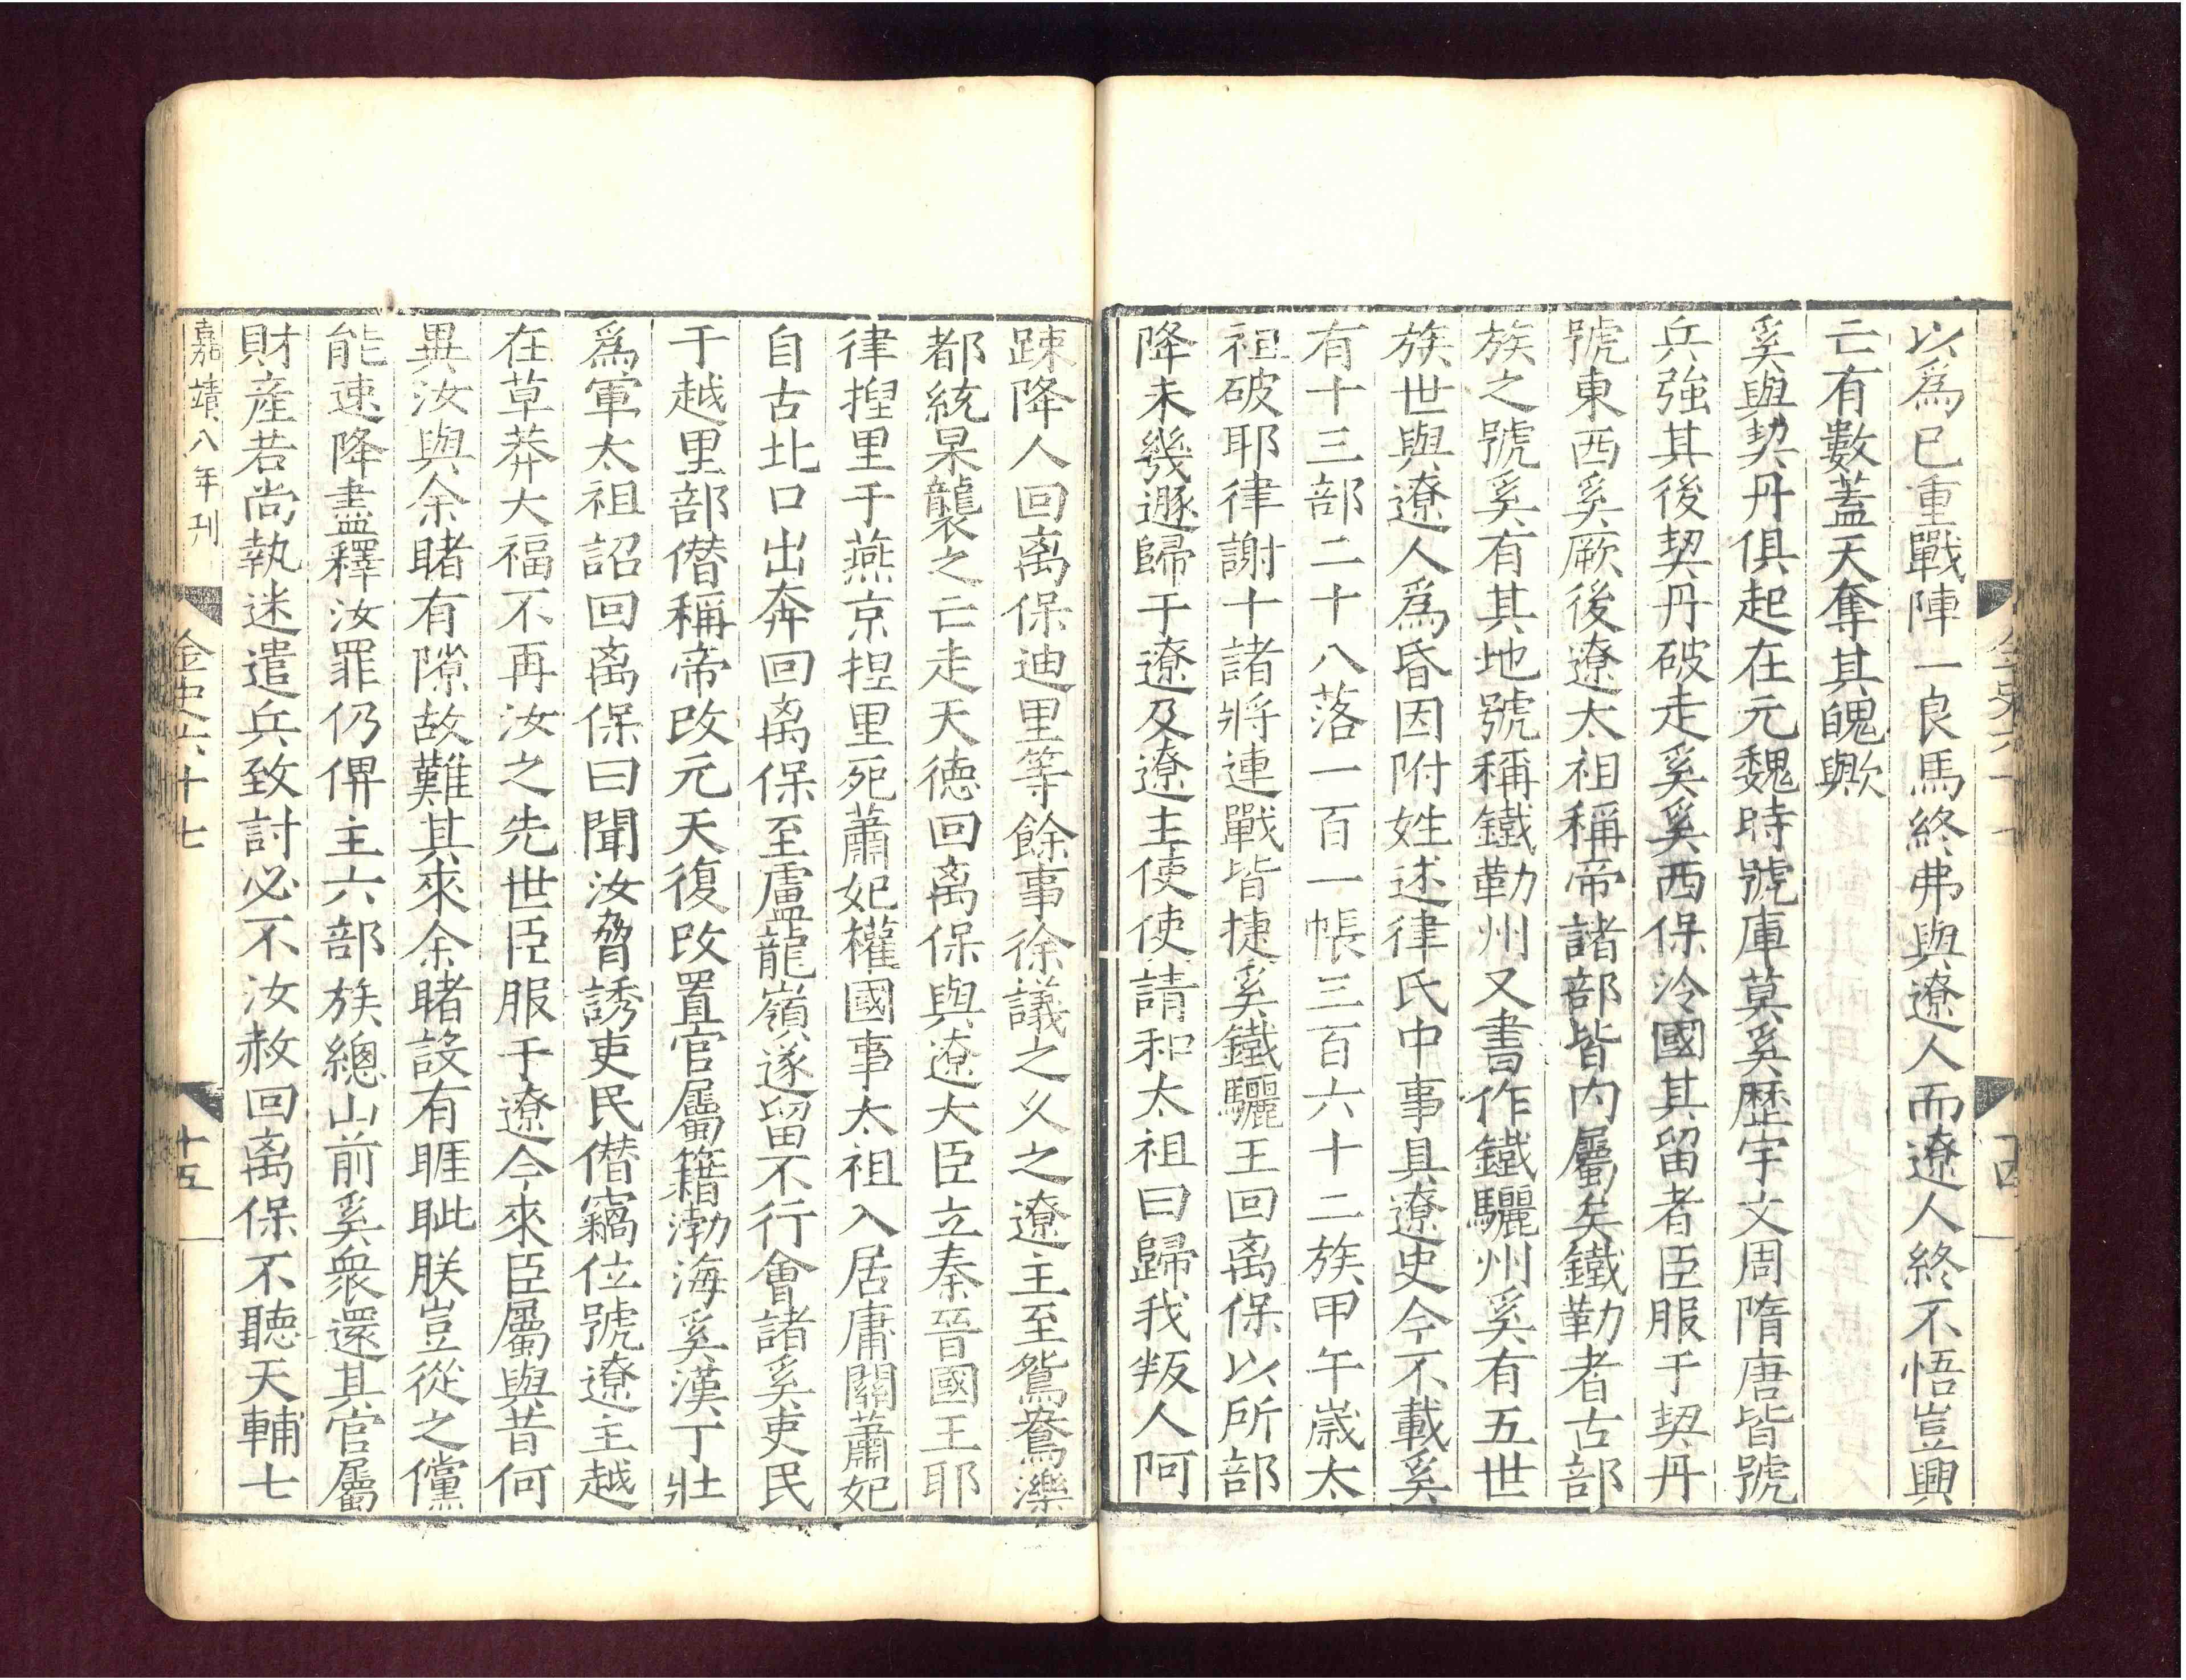 金史六十七
十四
以爲已重戰陣一良馬終弗與遼人而遼人終不悟豈興
亡有數蓋天奪其魄歟
奚與契丹俱起在元魏時號庫莫奚歷宇文周隋唐皆號
兵強其後契丹破走奚奚西保冷國其留者臣服于契丹
號東西奚厥後遼太祖稱帝諸部皆内屬矣鐵勒者古部
族之號奚有其地號稱鐵勒州又書作鐵驪州奚有五世
族世與遼人爲昏因附姓述律氏中事具遼史今不載奚
有十三部二十八落一百一帳三百六十二族甲午歲太
祖破耶律謝十諸將連戰皆捷奚鐵驪王回离保以所部
降未幾遯歸于遼及遼主使使請和太祖曰歸我叛人阿
踈降人回离保迪里等餘事徐議之乆之遼主至鴛鴦濼
都統杲襲之亡走天德回离保與遼大臣立秦晉國王耶
律捏里于燕京捏里死蕭妃權國事太祖入居庸關蕭妃
自古北口出奔回离保至盧龍嶺遂留不行會諸奚吏民
于越里部僭稱帝改元天復改置官屬籍渤海奚漢丁壯
爲軍太祖詔回离保曰聞汝脅誘吏民僭竊位號遼主越
在草莽大福不再汝之先世臣服于遼今來臣屬與昔何
異汝與余睹有隙故難其來余睹設有睚眦朕豈從之儻
能速降盡釋汝罪仍俾主六部族總山前奚衆還其官屬
財産若尚執迷遣兵致討必不汝赦回离保不聽天輔七
嘉靖八年刊
金史六十七
十五